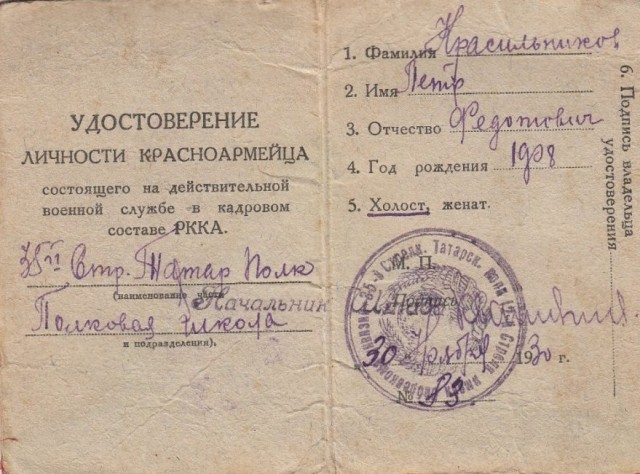 УДОСТОВЕРЕНИЕ
ЛИЧНОСТИ КРАСНОАРМЕЙЦА
состоящего на действительной
военной службе в кадровом
составе РККА.
Стр. Татар Полк
(наименование части
Начальник
Полковая школа
и подразделения).
1. Фамилия Красильников
2. Имя Петр
3. Отчество Федотович
4. Год рождения 1908
5. Холост, женат.
М. П.
Подпись
30 1930 г.
№ 83.
35-й Стрелк. Татарск. полк
6. Подпись владельца
удостоверения